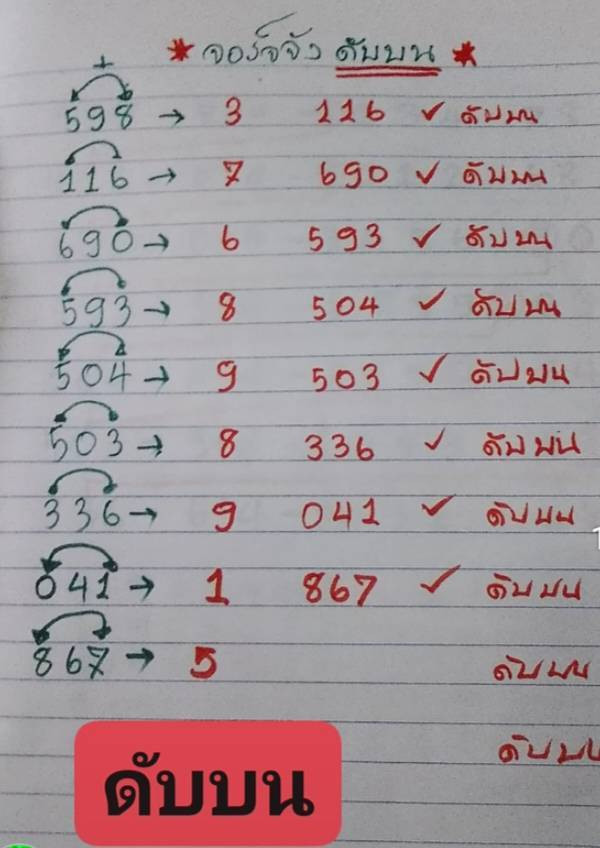 + * จอร์จจัง ดับบน *
598 → 3 116 ✓ ดับบน
116 → 7 690 ✓ ดับบน
690 → 6 593 ✓ ดับบน
593 → 8 504 ✓ ดับบน
504 → 9 503 ✓ ดับบน
503 → 8 336 ✓ ดับบน
336 → 9 041 ✓ ดับบน
041 → 1 867 ✓ ดับบน
867 → 5 ดับบน
ดับบน
ดับบน